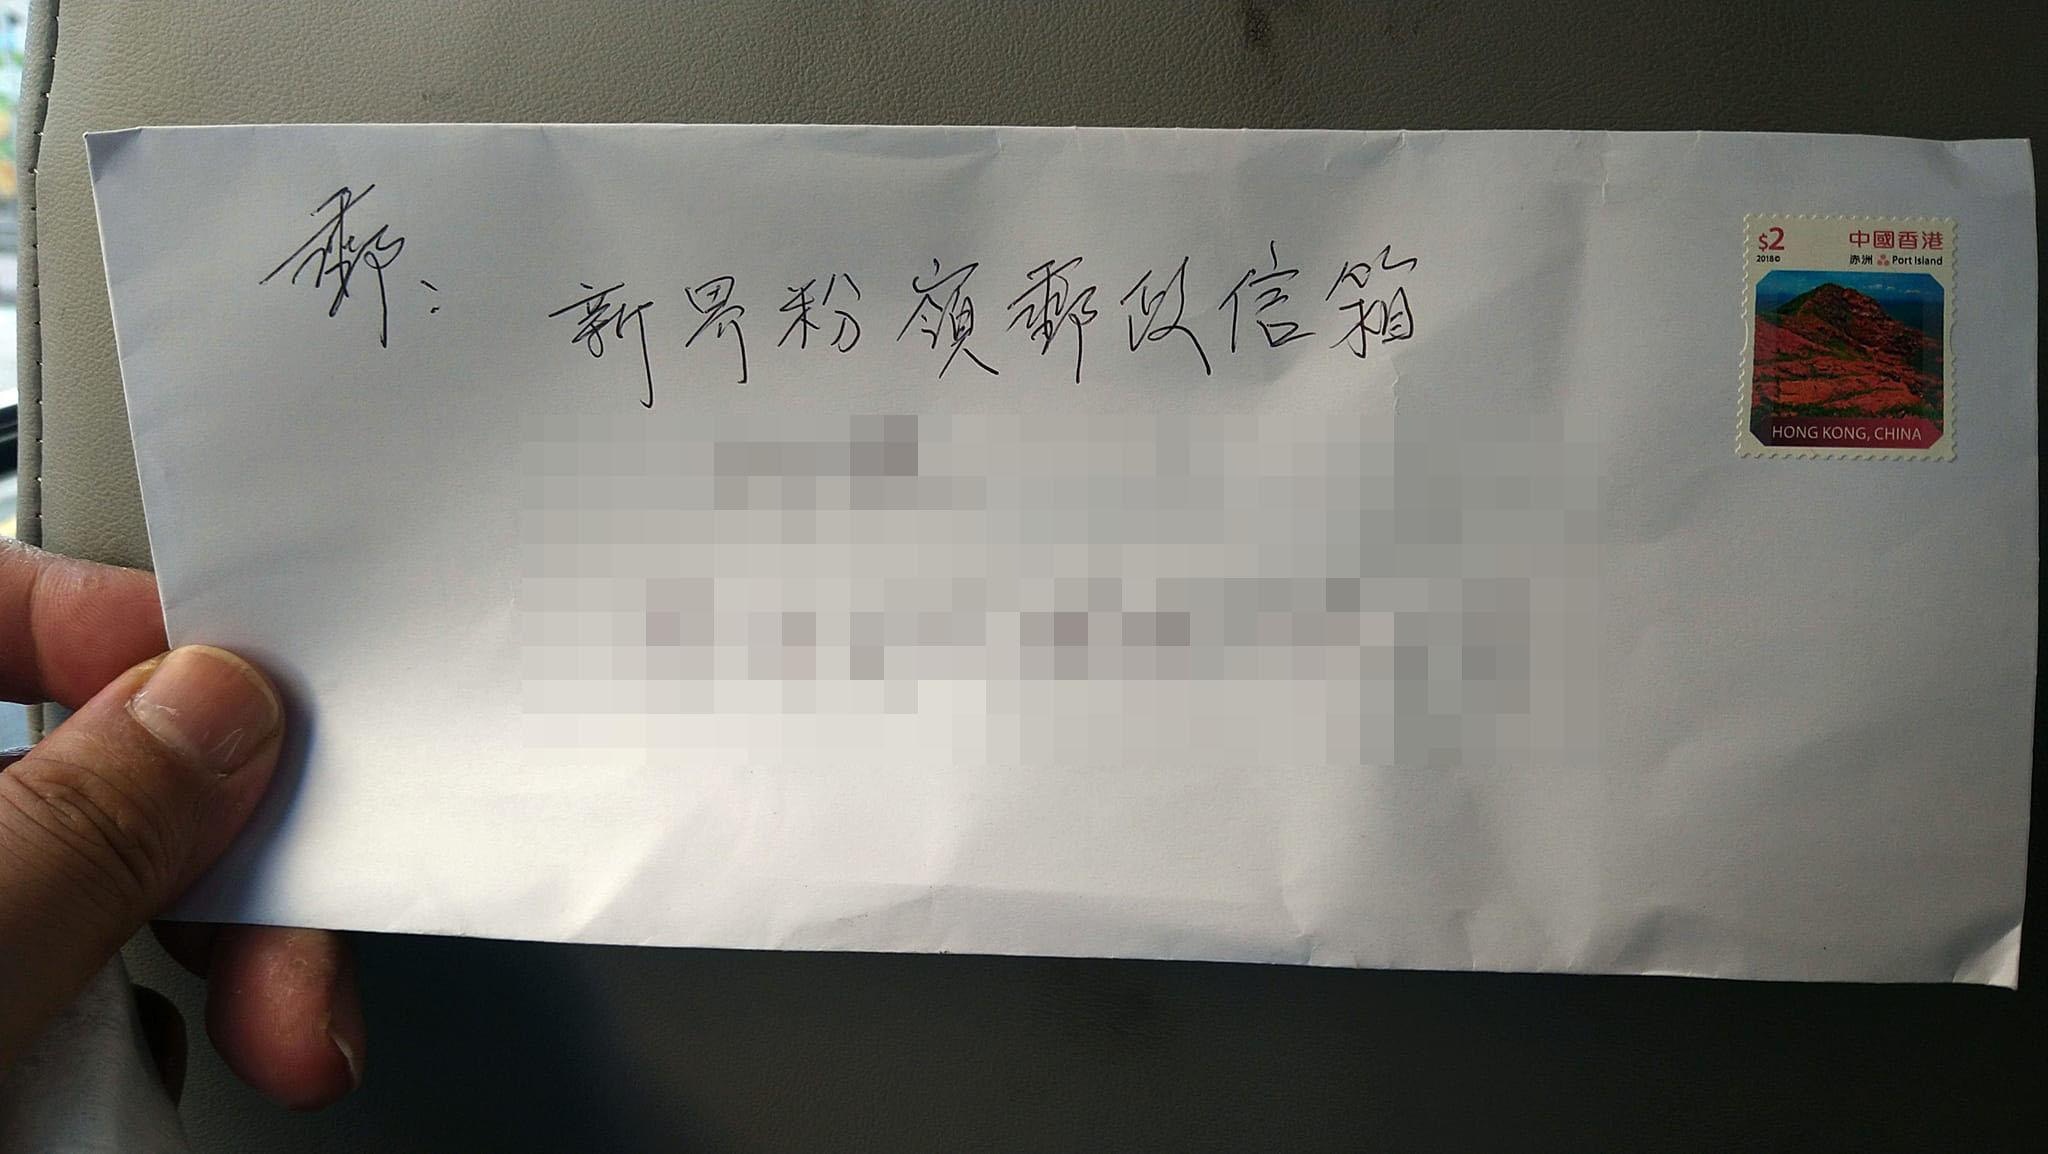 郵：
新界粉嶺郵政信箱
$2 中國香港
2018© 赤洲 Port Island
HONG KONG, CHINA